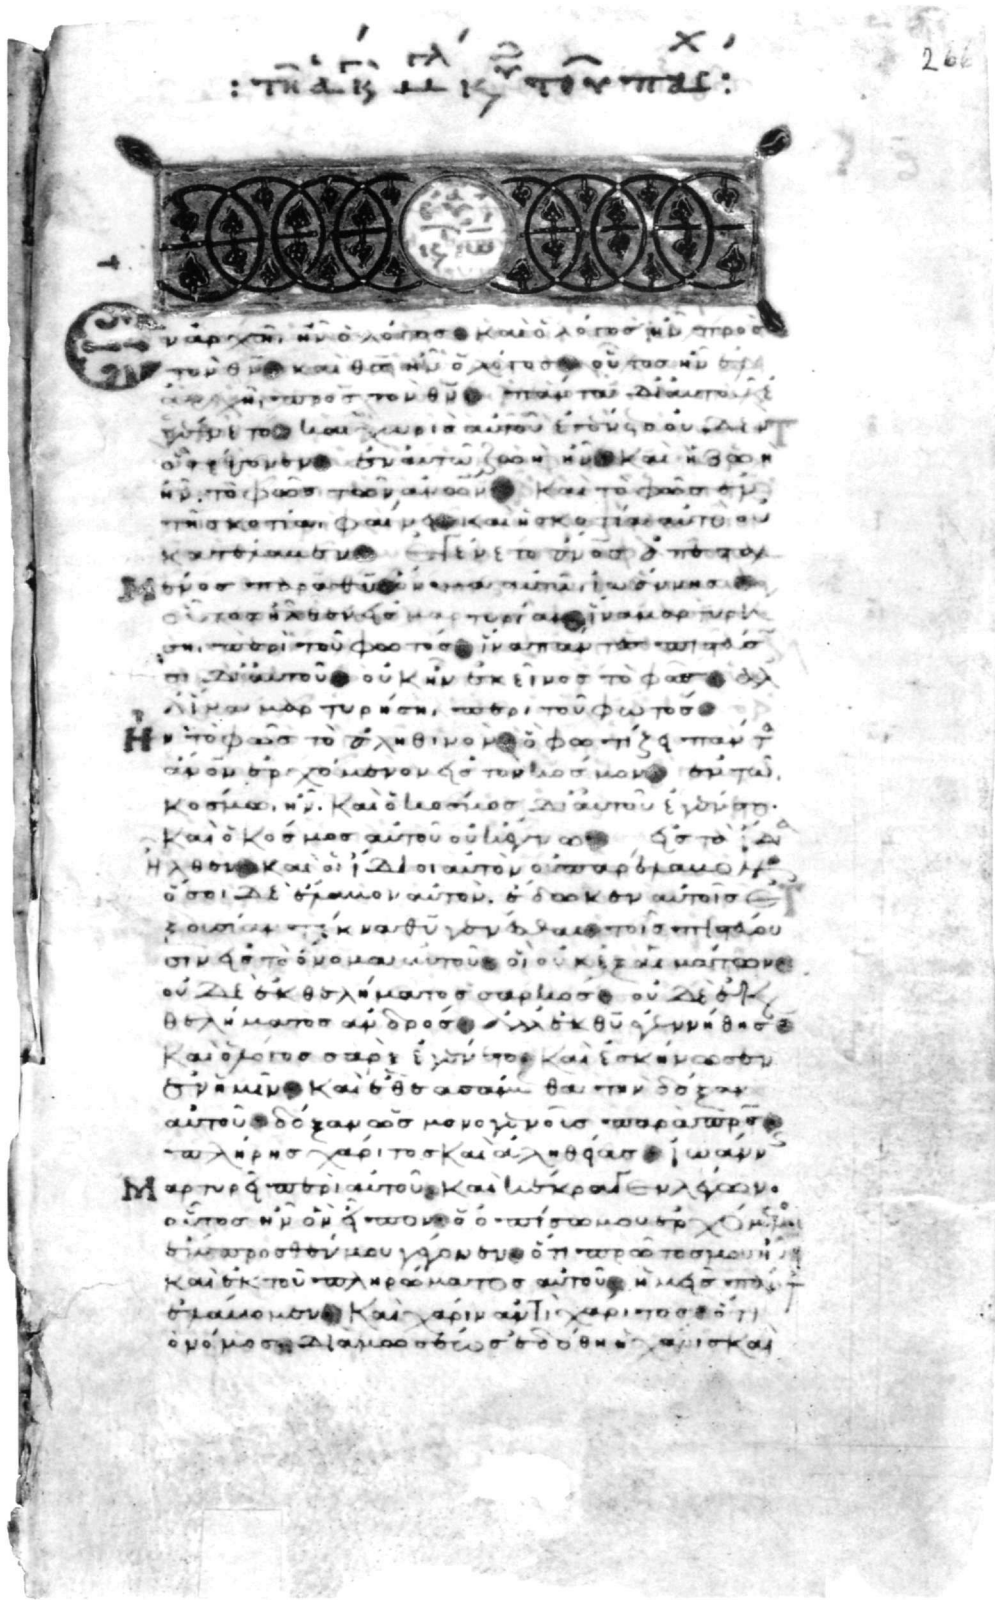 : τῇ ἁγ κ μεγλ κυ τοῦ πάσχ :
266
ν ἀρχῇ ἦν ὁ λόγος καὶ ὁ λόγος ἦν πρὸς
τὸν θν καὶ θς ἦν ὁ λόγος οὗτος ἦν ἐν
ἀρχῇ πρὸς τὸν θν πάντα δι αὐτοῦ ἐ
γένετο καὶ χωρὶς αὐτοῦ ἐγένετο οὐδὲ ἓν
ὃ γέγονεν ἐν αὐτῶ ζωὴ ἦν καὶ ἡ ζωὴ
ἦν τὸ φῶς τῶν ἀνων καὶ τὸ φῶς ἐν
τῇ σκοτία φαίνει καὶ ἡ σκοτία αὐτὸ οὐ
κατέλαβεν Ἐγένετο ἀνος ἀπεσταλ
μένος παρὰ θυ ὄνομα αὐτῶ ἰωάννης
οὗτος ἦλθεν εἰς μαρτυρίαν ἵνα μαρτυρή
ση περὶ τοῦ φωτός ἵνα πάντες πιστεύσω
σι δι αὐτοῦ οὐκ ἦν ἐκεῖνος τὸ φῶς ἀλλ
ἵνα μαρτυρήση περὶ τοῦ φωτός
Ἦν τὸ φῶς τὸ ἀληθινόν ὃ φωτίζει πάντα
ἀνον ἐρχόμενον εἰς τὸν κόσμον ἐν τῶ
κόσμω ἦν καὶ ὁ κόσμος δι αὐτοῦ ἐγένετο
καὶ ὁ κόσμος αὐτὸν οὐκ ἔγνω εἰς τὰ ἴδια
ἦλθεν καὶ οἱ ἴδιοι αὐτὸν οὐ παρέλαβον
ὅσοι δὲ ἔλαβον αὐτόν ἔδωκεν αὐτοῖς ἐ
ξουσίαν τέκνα θυ γενέσθαι τοῖς πιστεύου
σιν εἰς τὸ ὄνομα αὐτοῦ οἳ οὐκ ἐξ αἱμάτων
οὐδὲ ἐκ θελήματος σαρκός οὐδὲ ἐκ
θελήματος ἀνδρός ἀλλ ἐκ θυ ἐγεννήθησαν
καὶ ὁ λόγος σὰρξ ἐγένετο καὶ ἐσκήνωσεν
ἐν ἡμῖν καὶ ἐθεασάμεθα τὴν δόξαν
αὐτοῦ δόξαν ὡς μονογενοῦς παρὰ πρς
πλήρης χάριτος καὶ ἀληθείας ἰωάννης
μαρτυρεῖ περὶ αὐτοῦ καὶ κέκραγεν λέγων
οὗτος ἦν ὃν εἶπον ὁ ὀπίσω μου ἐρχόμενος
ἔμπροσθέν μου γέγονεν ὅτι πρῶτός μου ἦν
καὶ ἐκ τοῦ πληρώματος αὐτοῦ ἡμεῖς πάντες
ἐλάβομεν καὶ χάριν ἀντὶ χάριτος ὅτι
ὁ νόμος διὰ μωσέως ἐδόθη ἡ χάρις καὶ